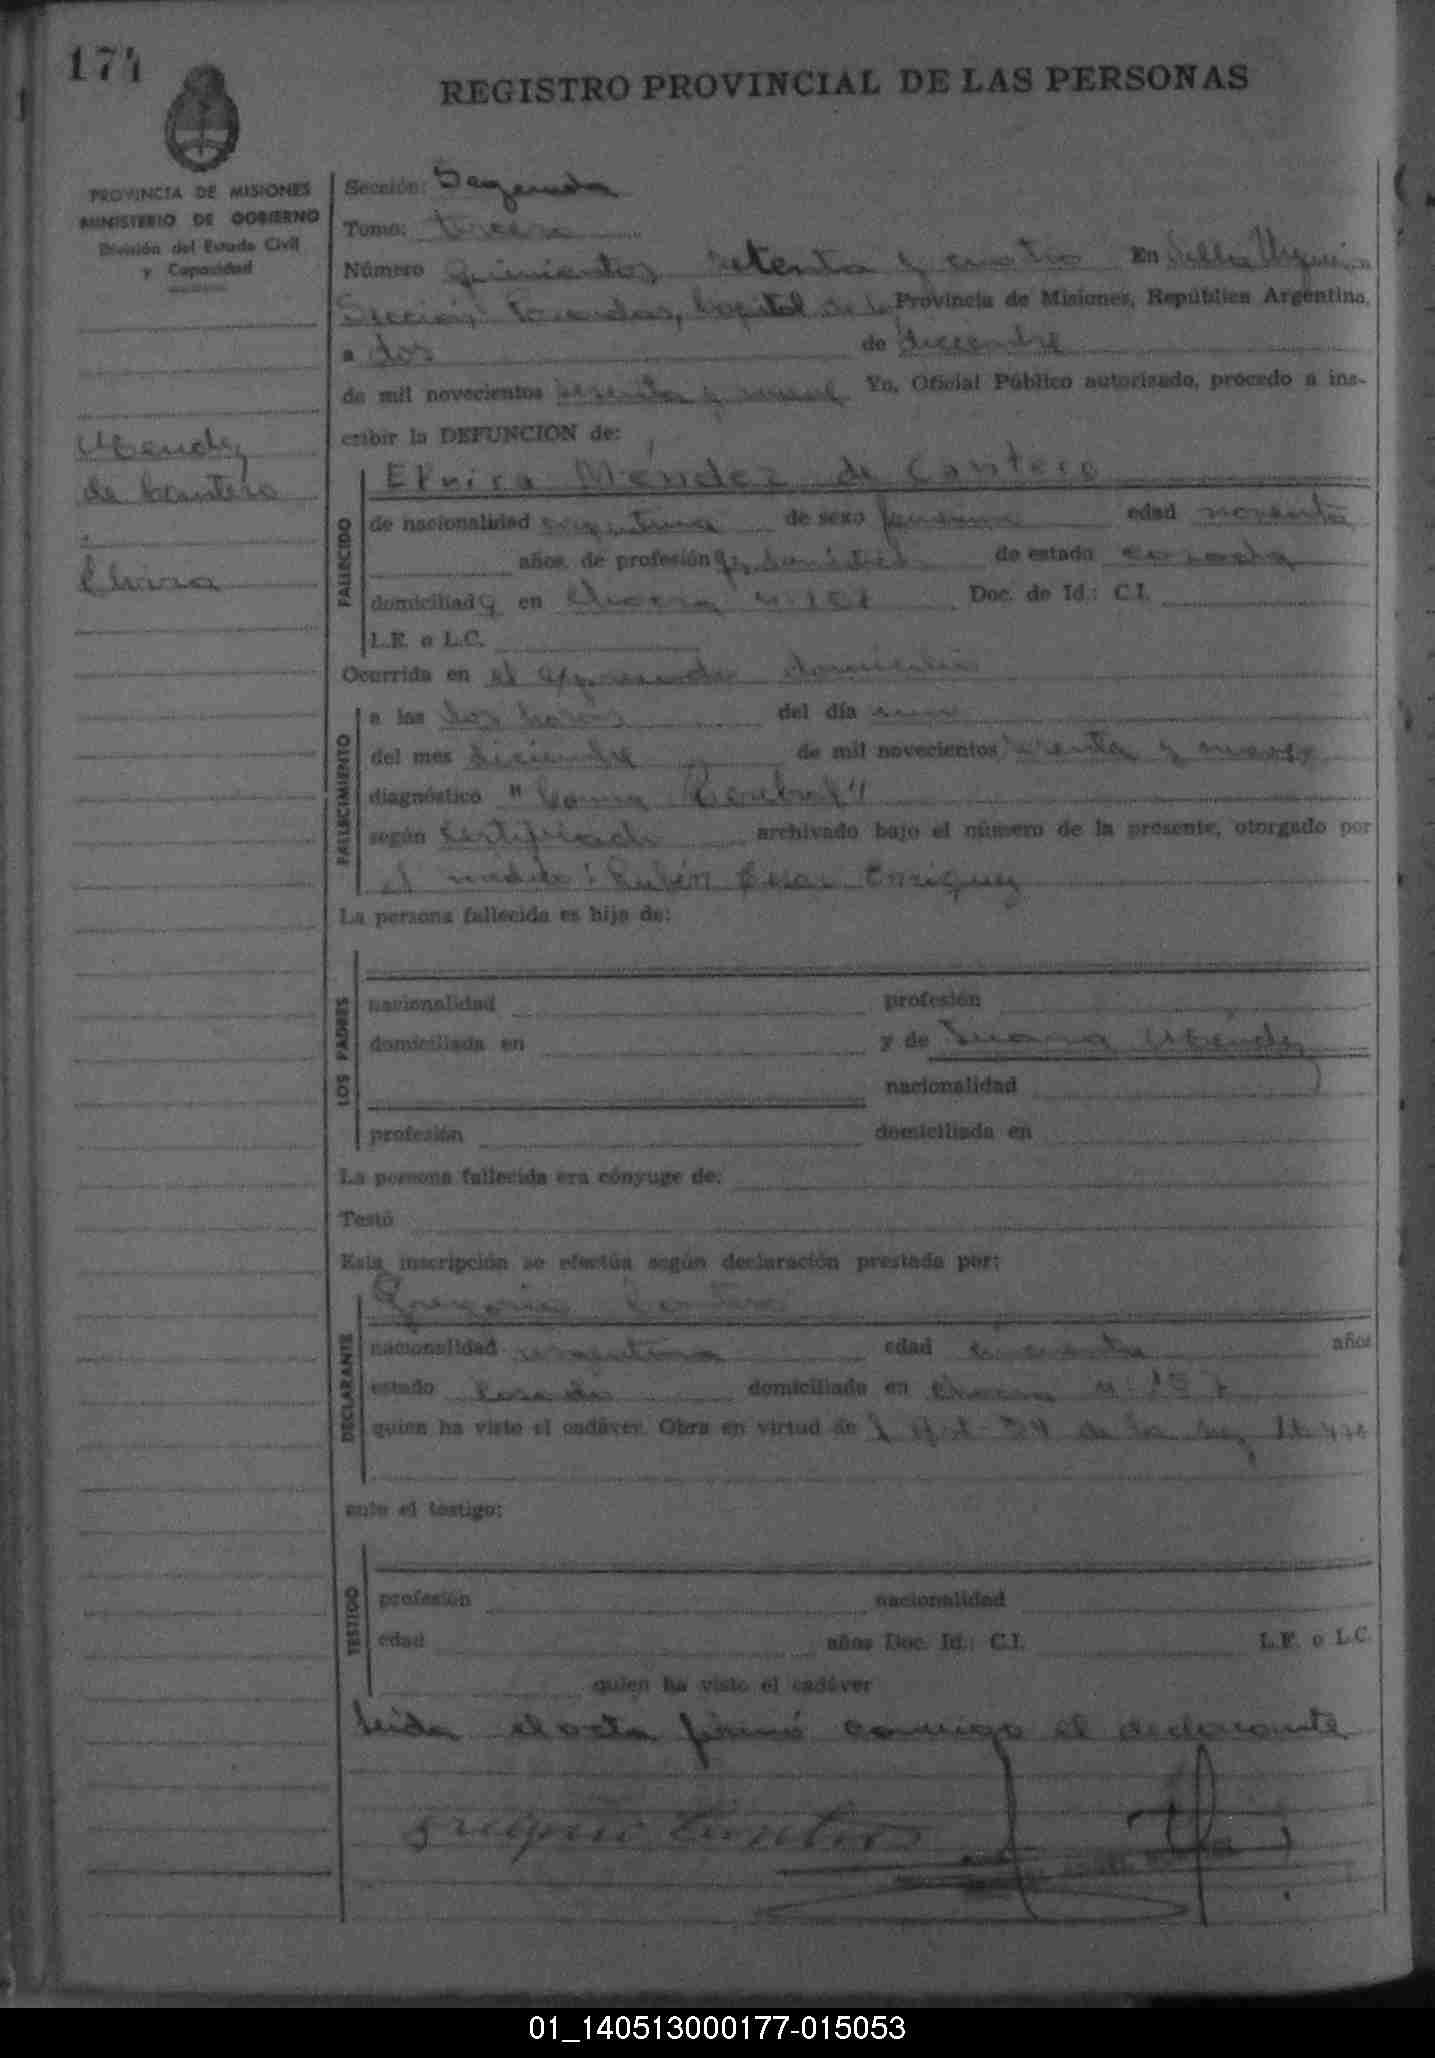 174
REGISTRO PROVINCIAL DE LAS PERSONAS
PROVINCIA DE MISIONES
MINISTERIO DE GOBIERNO
División del Estado Civil
y Capacidad
Mendez
de Cantero
Elvira
Sección: Segunda
Tomo: tercero
Número quinientos setenta y cuatro En Villa Urquiza
Sección, Posadas, Capital de la Provincia de Misiones, República Argentina,
a dos de diciembre
de mil novecientos sesenta y nueve Yo, Oficial Público autorizado, procedo a ins-
cribir la DEFUNCION de:
FALLECIDO
Elvira Méndez de Cantero
de nacionalidad argentina de sexo femenino edad noventa
años, de profesión de estado casada
domiciliada en Chacra Doc. de Id.: C.I.
L.E. o L.C.
Ocurrida en el expresado domicilio
FALLECIMIENTO
a las dos horas del día uno
del mes diciembre de mil novecientos sesenta y nueve
diagnóstico "Coma Cerebral"
según certificado archivado bajo el número de la presente, otorgado por
el médico: Rubén Cesar Enriquez
La persona fallecida es hija de:
LOS PADRES
nacionalidad profesión
domiciliada en y de Juana Mendez
nacionalidad
profesión domiciliada en
La persona fallecida era cónyuge de:
Testó
Esta inscripción se efectúa según declaración prestada por:
DECLARANTE
Gregorio Cantero
nacionalidad argentina edad cincuenta años
estado casado domiciliado en Chacra
quien ha visto el cadáver. Obra en virtud de l Art. de la ley
ante el testigo:
TESTIGO
profesión nacionalidad
edad años Doc. Id.: C.I. L.E. o L.C.
quien ha visto el cadáver
Leida el acta firmó conmigo el declarante
Gregorio Cantero
01_140513000177-015053